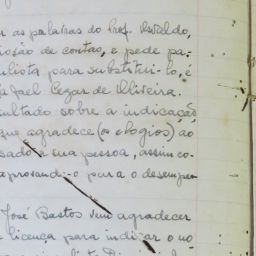 as palavras do Prof. Osvaldo,
de contas, e pede pa-
para substituí-lo, é
Cezar de Oliveira.
sultado sobre a indicação
que agradece (os elogios) ao
sado a sua pessoa, assim co-
aprovando-o para o desempe
José Bastos vem agradecer
licença para indicar o no